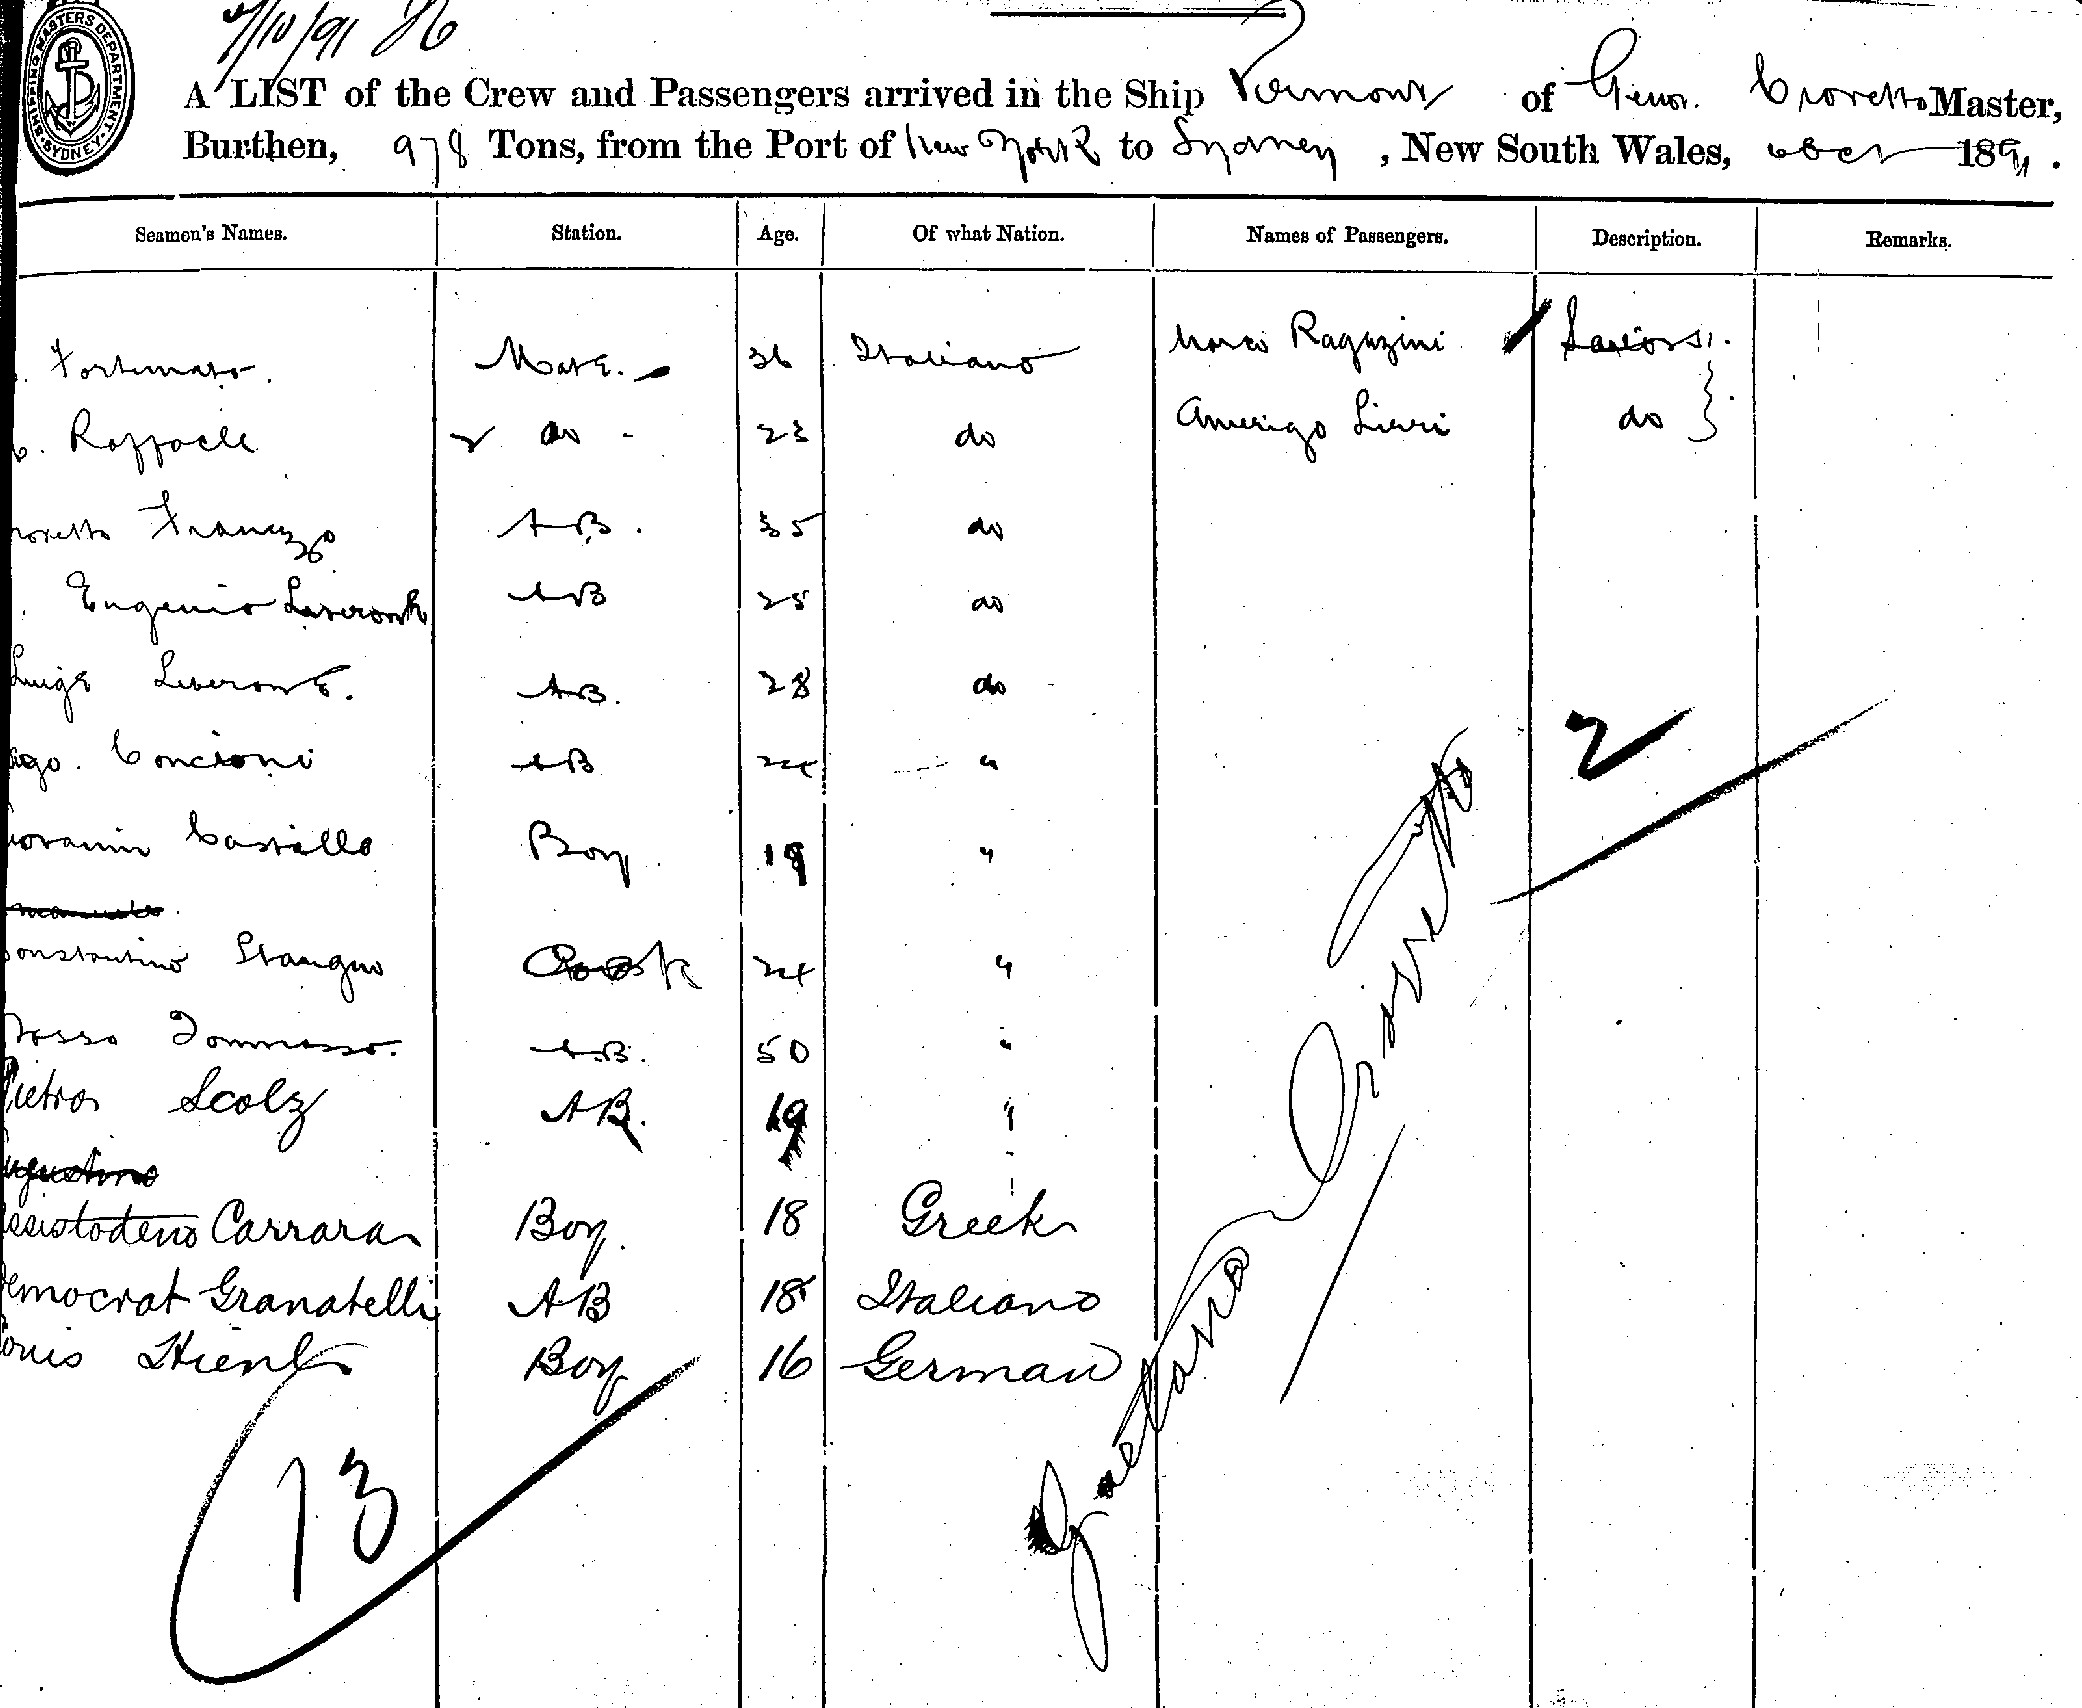 7/10/91 86
SHIPPING MASTERS DEPARTMENT. SYDNEY
A LIST of the Crew and Passengers arrived in the Ship Vermont of Genoa. Crovetto Master,
Burthen, 978 Tons, from the Port of New York to Sydney, New South Wales, 6 Oct 1891.
Seamen's Names. Station. Age. Of what Nation. Names of Passengers. Description. Remarks.
Fortunato. Mate. 36 Italiano Marco Ragazini Saviors.
Raffaele 2 do - 23 do Amerigo Livri do
Francezo A B. 35 do
Eugenio A B 25 do
Luige Liverone. A B. 28 do
Concioni A B 24 "
iovanni Castello Boy 19 "
onstantino Stanguo Cook 24 "
Tommasso. A.B. 50 "
Pietro Scolz A B. 19 "
Carrara Boy. 18 Greek
emocrat Granatelli A B 18 Italiano
ouis Hienl Boy 16 German
2
13
Gaetano Crovetto